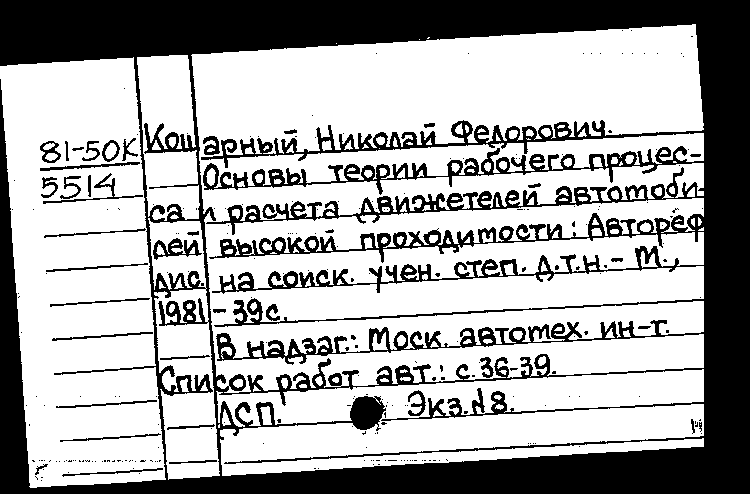 81-50К Кошарный, Николай Федорович.
5514 Основы теории рабочего процес-
са и расчета движетелей автотоби-
лей высокой проходимости: Автореф
дис. на соиск. учен. степ. д.т.н.- М.,
1981 - 39с.
В надзаг.: Моск. автотех. ин-т.
Список работ авт.: с.36-39.
ДСП. Экз.№8.